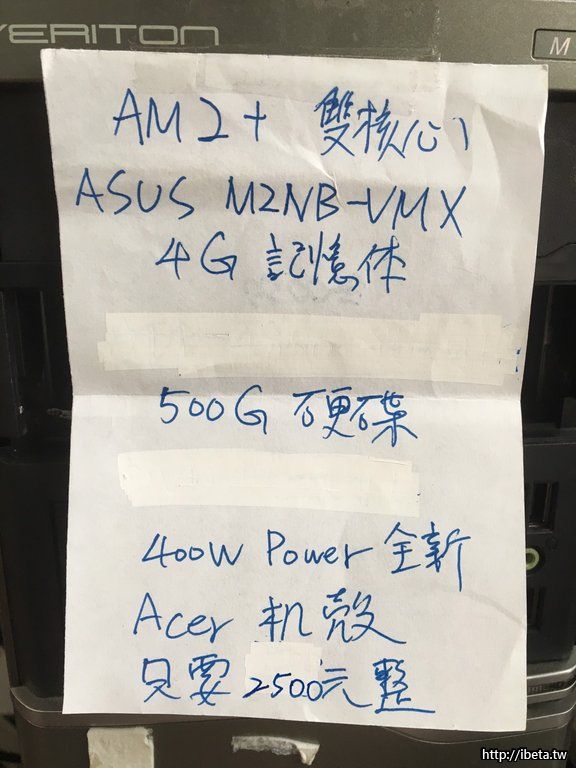 VERITON
M
AM2+ 雙核心
ASUS M2NB-VMX
4G 記憶体
500G 硬碟
400W Power 全新
Acer 机殼
只要 2500元整
http://ibeta.tw